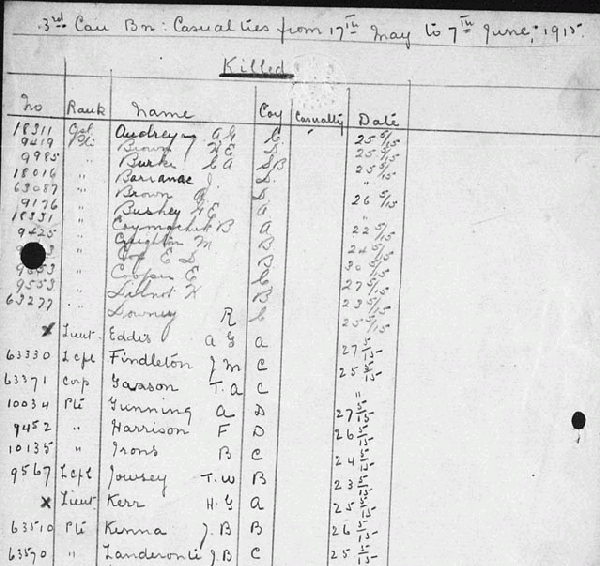 3rd Can Bn: Casualties from 17th May to 7th June, 1915.
Killed
No Rank Name Coy Casualty Date
18311 Cpl Audrey A G C. 25 5/15
9419 Pte Brown H E D. 25 5/15
9985 " Burke C A SB 25 5/15
18016 " Barranac J. D. "
63087 " Brown D. 26 5/15
9176 " Bushey H E a "
18331 " B a 22 5/15
9425 " Creighton M B 24 5/15
" Cox E S B 30 5/15
" Cooper E C 27 5/15
9553 " Talbot H B 23 5/15
63277 Downey R C 25 5/15
x Lieut. Eddis A G A 27 5/15
63330 Lcpl Findleton J M C 25 5/15
63371 Corp Gaxson T. A C "
10034 Pte Gunning A D 27 5/15
9452 " Harrison F D 26 5/15
10135 " Irons B C 24 5/15
9567 Lcpl Jowsey T. W B 23 5/15
x Lieut Kerr H. G A 25 5/15
63510 Pte Kenna J. B B 26 5/15
63570 " Landeronte J. B C 25 5/15